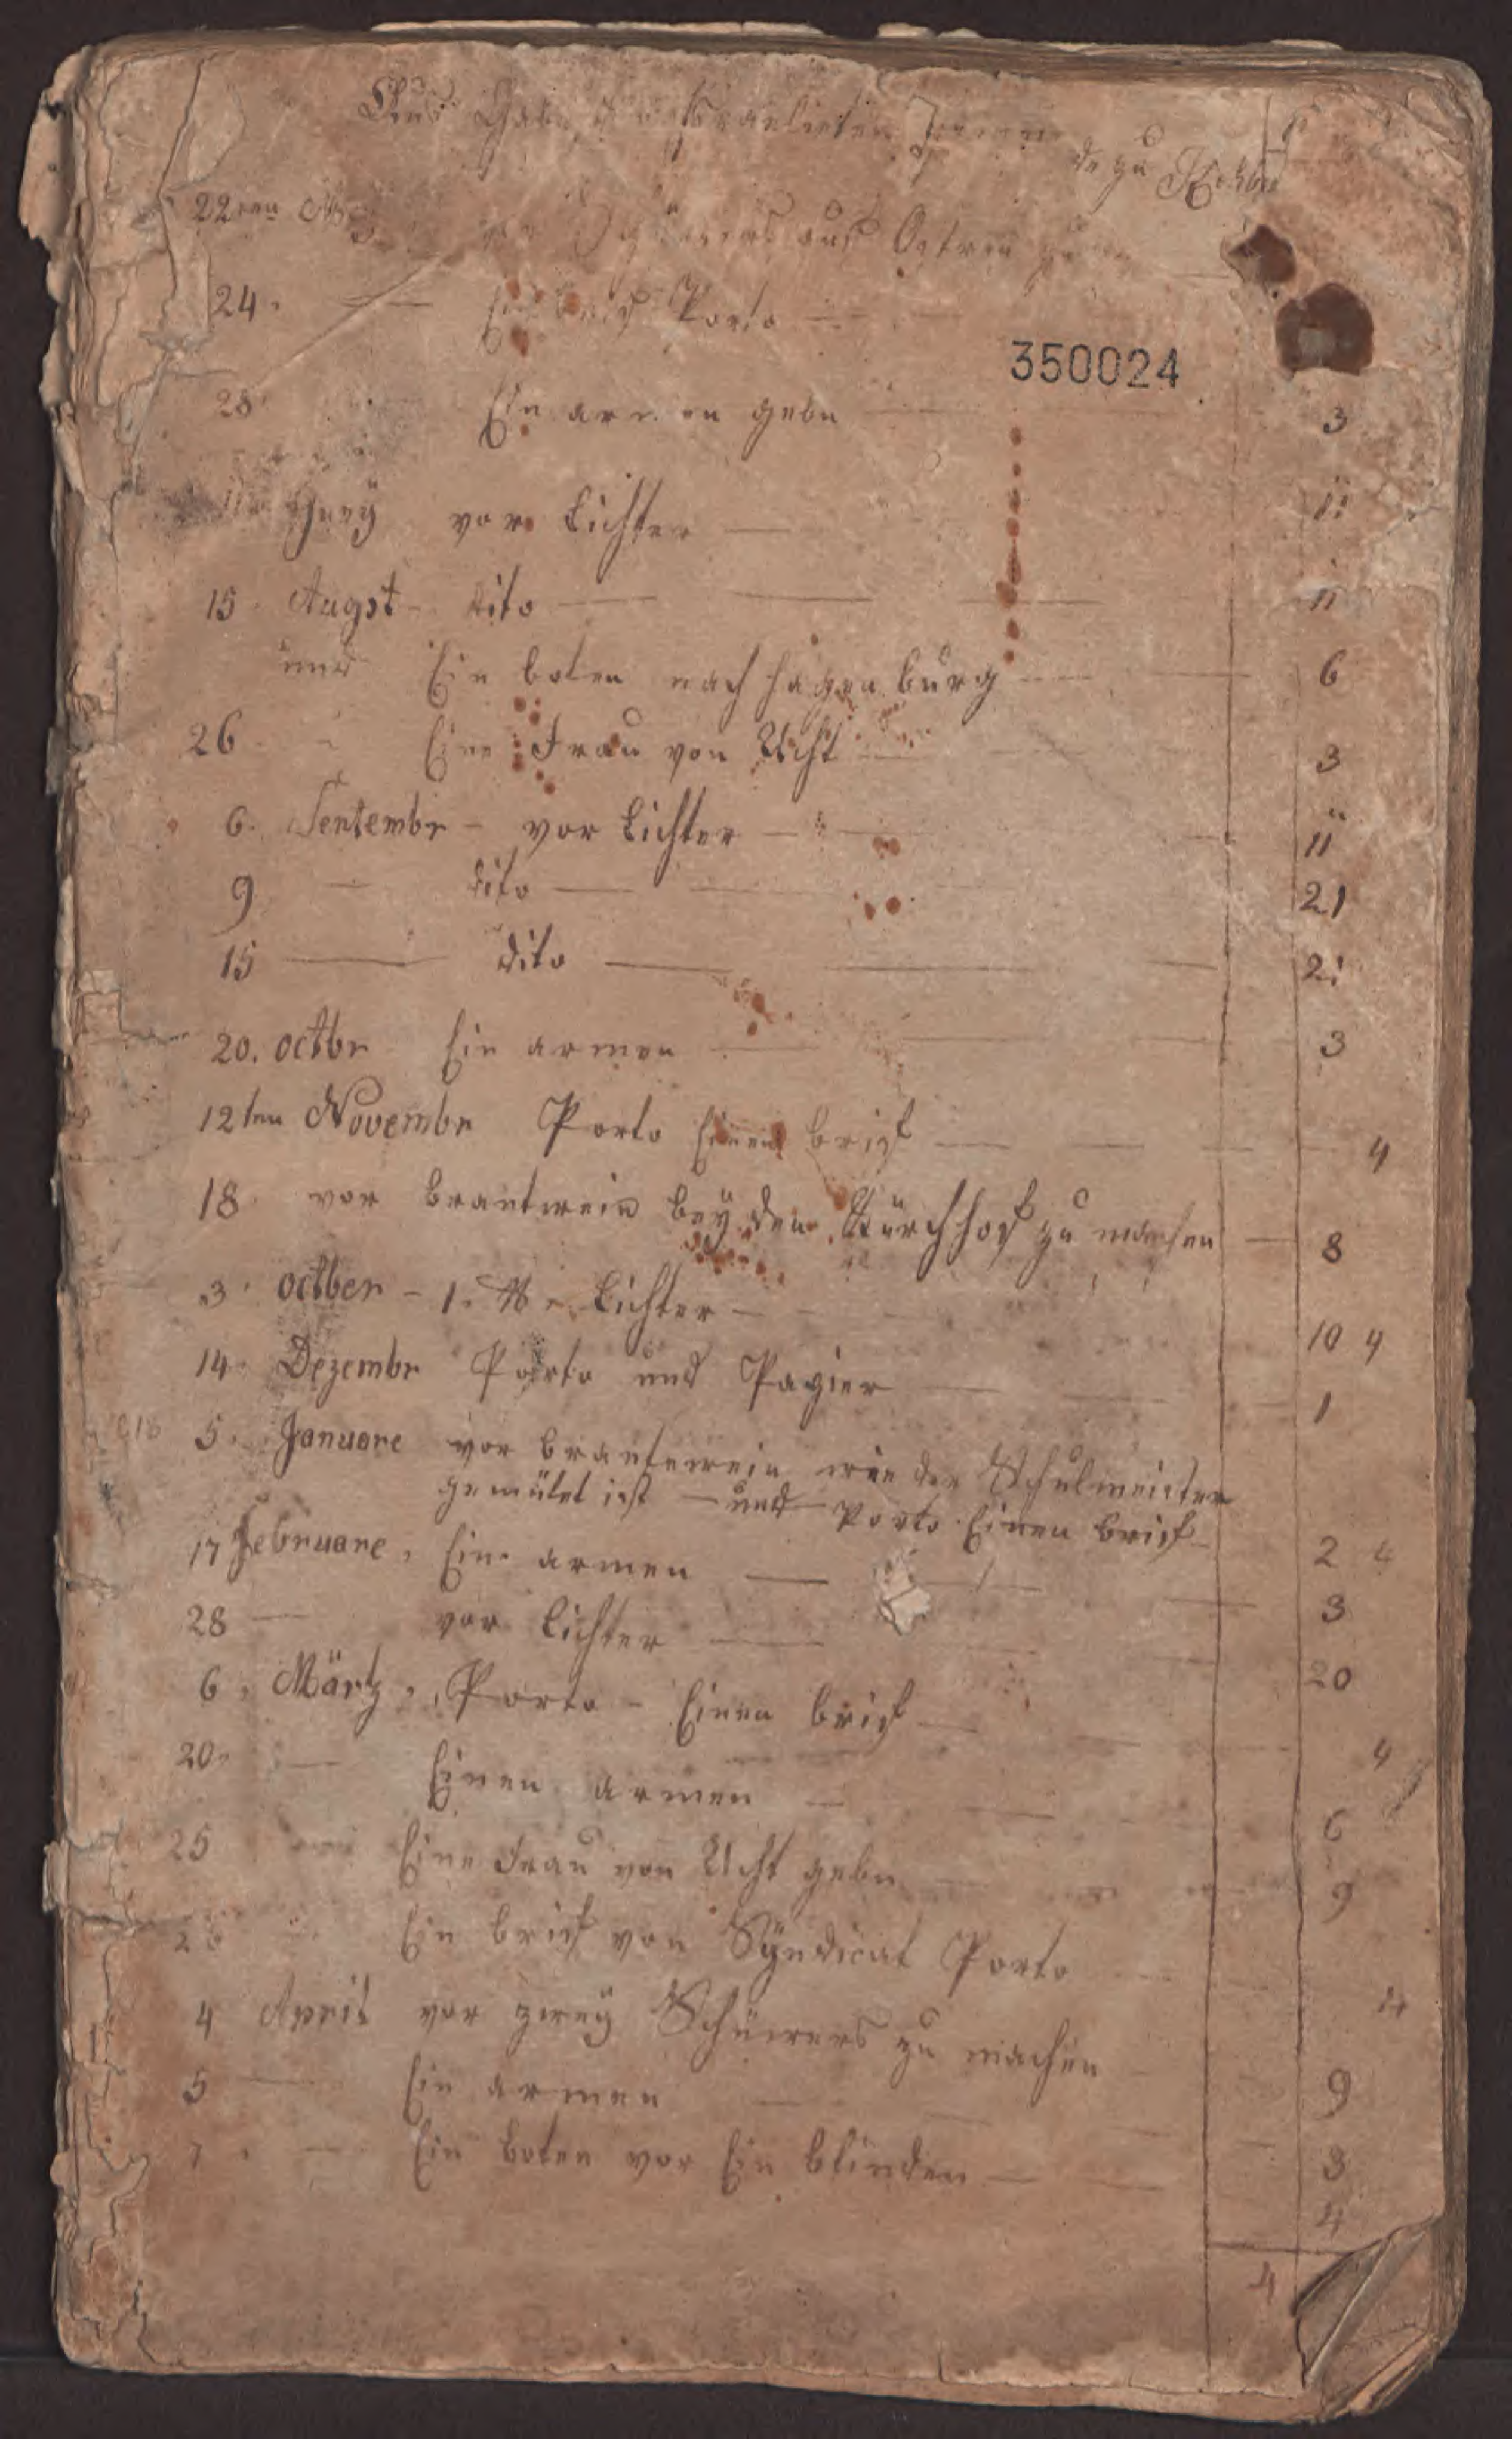 Israelieten
de zu Rehbu
22ten
aus
24. Porto
350024
28 Ein armen gebn 3
Juny vor Lichter 11
15 Augst dito 11
und Ein boten nach hagenburg 6
26 Eine Frau von Ucht 3
6. Sentembr - vor Lichter - 11
9 dito 21
15 dito 21
20. octbr Ein armen 3
12ten Novembr Porto Einen brief 4
18 vor brantwein beÿ den Kürchhof zu machen 8
3 octber - 1 ℔ Lichter - 10 4
14 Dezembr Porto und Papier 1
5. Januare vor brantewein wie der Schulmeister
gemütet ist - und Porto Einen brief 2 4
17 Februare, Ein armen 3
28 vor Lichter 20
6. Märtz, Porto - Einen brief 4
20 Einen armen 6
25 Eine Frau von Ucht gebn 9
Ein brief von Sÿndicat Porto 4
4 April vor zweÿ zu machen 9
5 Ein armen 3
7 Ein boten vor Ein blinden 4
4